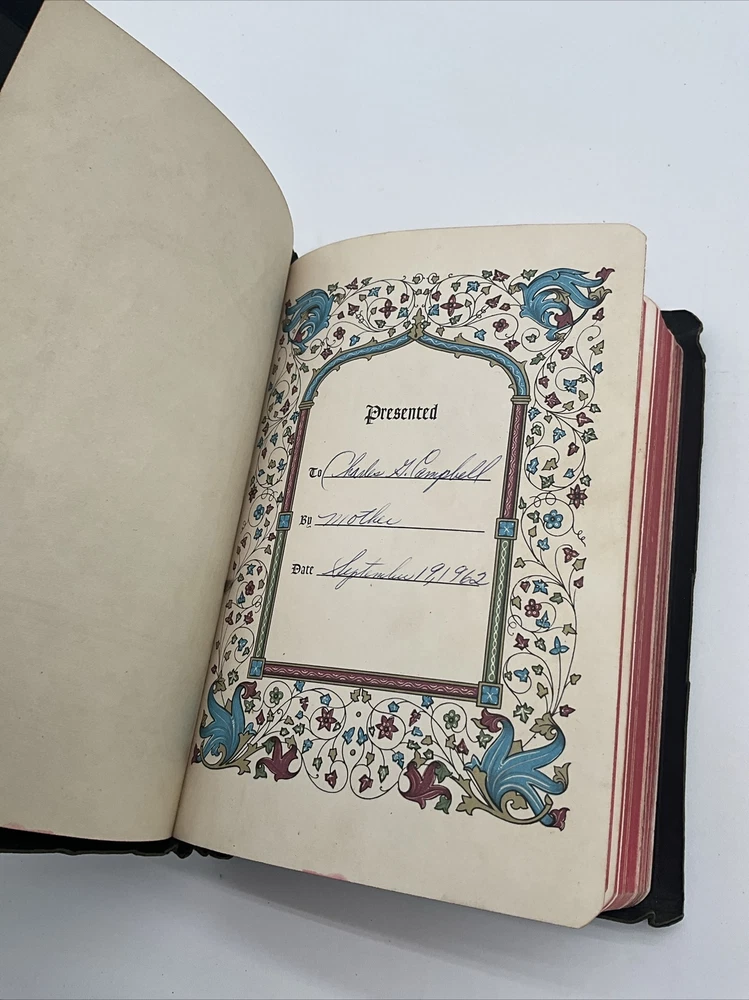 Presented
To Charles G. Campbell
By Mother
Date September 19, 1962